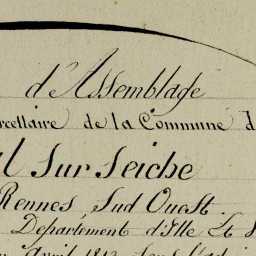 d'Assemblage
rcellaire de la Commune d
l Sur Seiche
Rennes Sud Ouest
Département d'Ille Et
avril